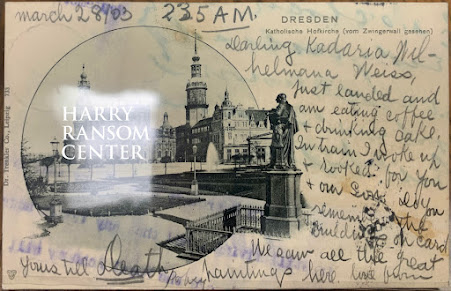 march 28/03 235 A.M.
DRESDEN
Katholische Hofkirche (vom Zwingerwall gesehen)
Darling Kadaria Wil-
helmana Weiss,
just landed and
am eating coffee
+ drinking cake.
In train I woke up
+ looked for you
+ our
remem the
building on card
We saw all the great
paintings here. love
yours till Death,
HARRY
RANSOM
CENTER
Dr. Trenkler Co., Leipzig 133